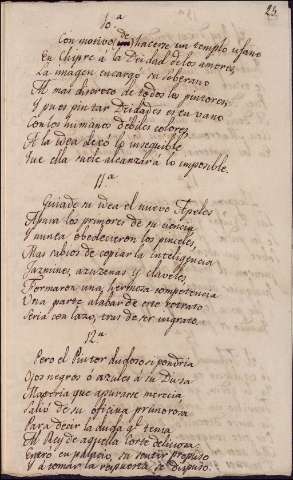 23.
10.ª
Con motivo de hacerse un templo ufano
En Chipre á la Deidad de los amores,
La imagen encargó su soberano
Al mas diestro de todos los pintores
Y pues pintar Deidades es en vano
Con los humanos débiles colores,
Á la idea dexó lo inseguible
Que ella suele alcanzar á lo imposible.
11.ª
Guiado de su idea el nuevo Apeles
Apura los primores de su ciencia,
Y nunca obedecieron los pinceles,
Mas sabios de copiar la inteligencia
Jazmines, azuzenas y claveles,
Formaron una hermosa competencia
Una parte alabar de este retrato
Seria con lazo, tras de ser ingrato.
12.ª
Pero el Pintor dudoso si pondria
Ojos negros ó azules á su Diosa
Materia que apurarse merecia,
Salió de su oficina primorosa
Para decir la duda q.e tenia
Al Rey de aquella Corte deliciosa
Entró en palacio, su sentir propuso
Y á tomar la respuesta se dispuso.